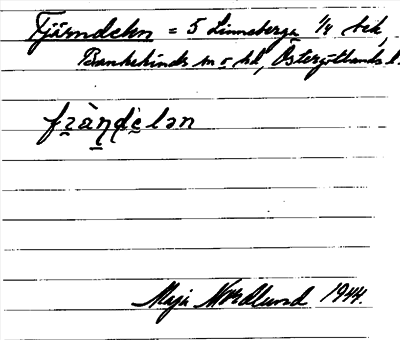 Fjärndelen = 5 Linneberga 1/4 sek,
Bankekinds sn o hd, Östergötlands l.
fɪ̀äɳḍèlən
Maja Nordlund 1944.